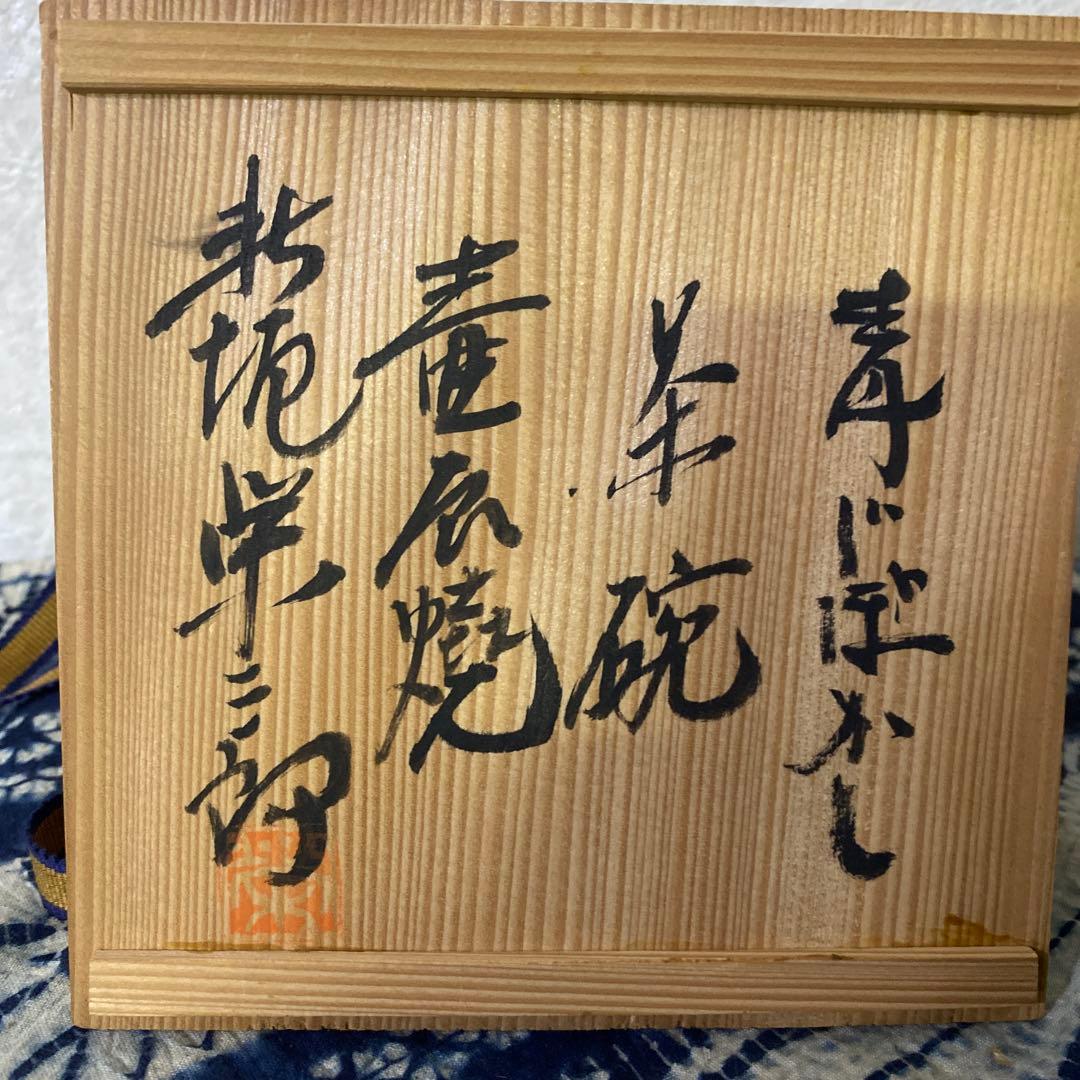 青じぼかし
茶碗
壷屋焼
新垣栄三郎